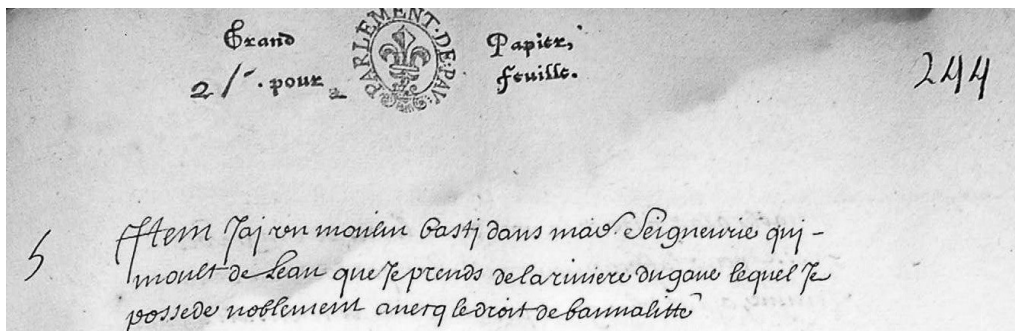 Grand Papier,
2 s. pour feuille.
PARLEMENT·DE·PAV·
244
5
Ittem J'ai vn moulin basti dans mad. Seigneurie qui -
moult de Leau que Je prends de la riuiere du gaue lequel Je
possede noblement auecq le droit de bannalitté